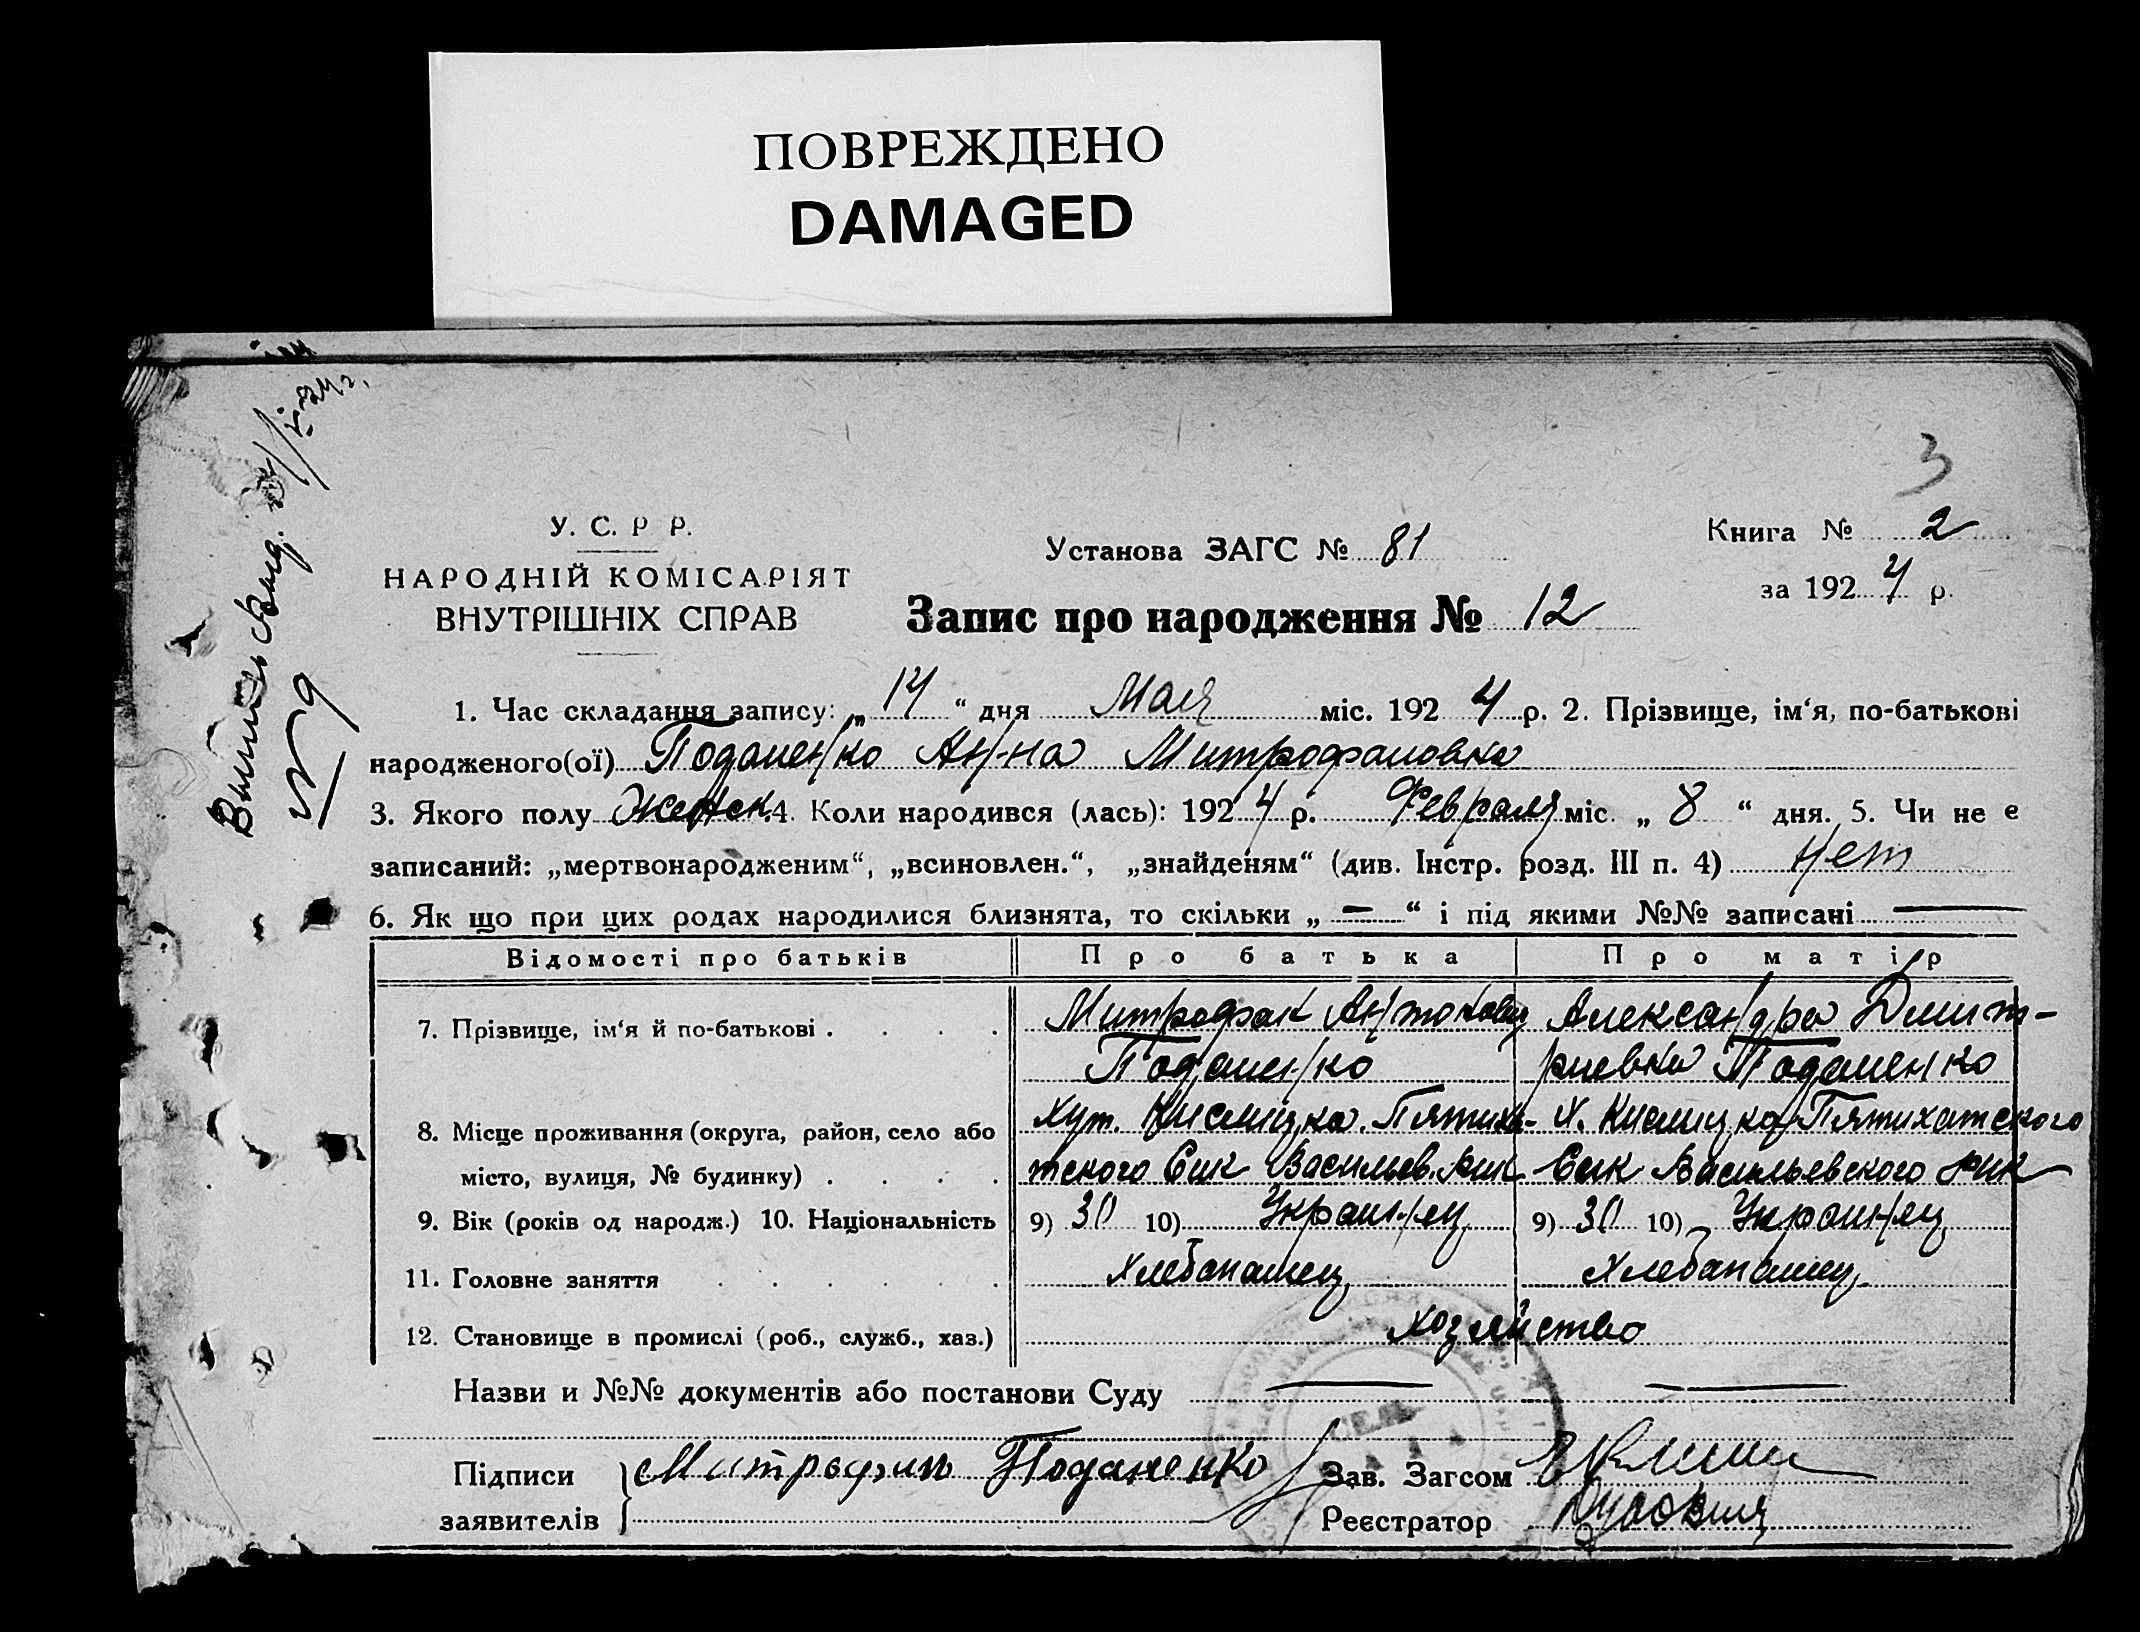 ПОВРЕЖДЕНО
DAMAGED
3
У. С. Р Р.
НАРОДНІЙ КОМІСАРІЯТ
ВНУТРІШНІХ СПРАВ
Установа ЗАГС № 81
Книга № 2
за 1924 р.
Запис про народження № 12
№ 9
1. Час складання запису: „ 14 “ дня Мая міс. 1924 р. 2. Прізвище, ім‘я, по-батькові
народженого(ої) Поданенко Анна Митрофановна
3. Якого полу Женск. 4. Коли народився (лась): 1924 р. Февраля міс. „ 8 “ дня. 5. Чи не є
записаний: „мертвонародженим“, „всиновлен.“, „знайденям“ (див. Інстр. розд. III п. 4) нет
6. Як що при цих родах народилися близнята, то скільки „ — “ і під якими №№ записані —
Відомості про батьків Про батька Про матір
7. Прізвище, ім‘я й по-батькові . . . . Митрофан Антонович Александра Дмит-
Поданенко риевна Поданенко
8. Місце проживання (округа, район, село або Хут. Кислицка. Пятиха- Х. Кислицка Пятихатского
місто, вулиця, № будинку) . . . . тского Сик Васильев. Рик Сик Васильевского рик
9. Вік (років од народж.) 10. Національність 9) 30 10) Украинец 9) 30 10) Украинец
11. Головне заняття . . . . . Хлебапашец Хлебапашец
12. Становище в промислі (роб., служб., хаз.) хозяйство
Назви и №№ документів або постанови Суду — —
Підписи
заявителів
Митрофан Поданенко
Зав. Загсом
Реєстратор